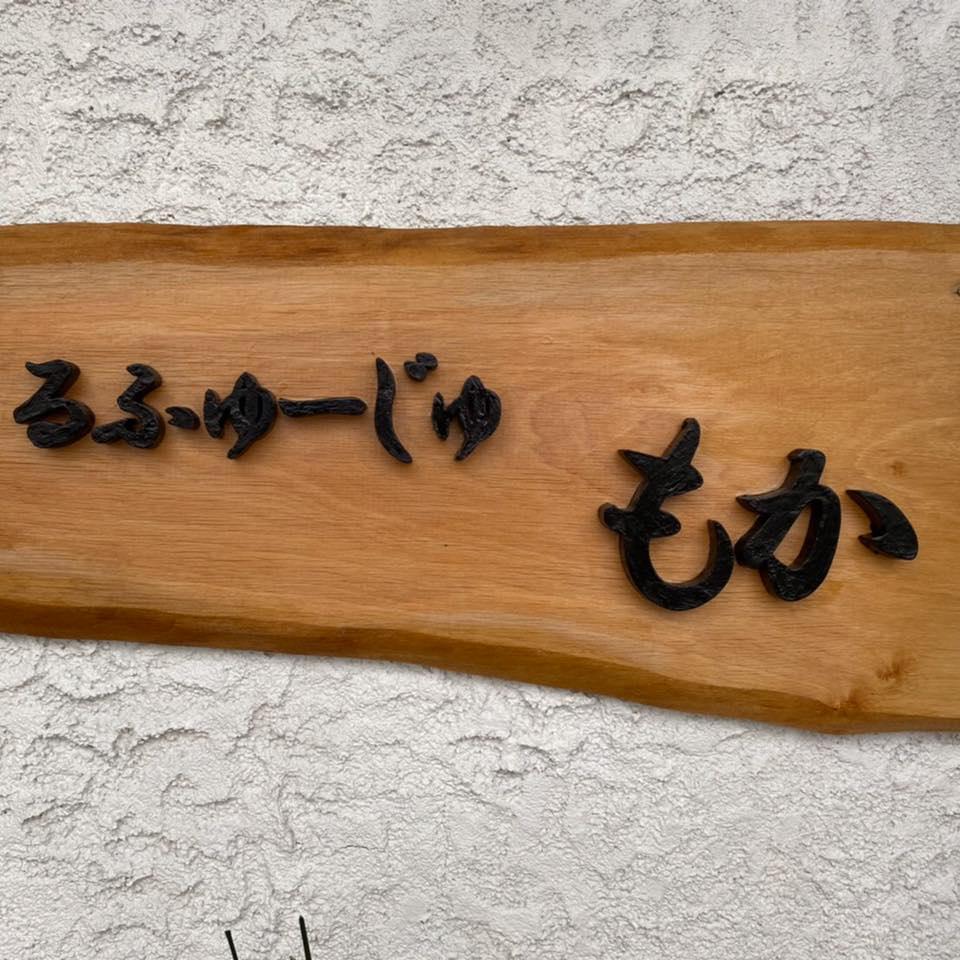 るふゅーじゅ
もか